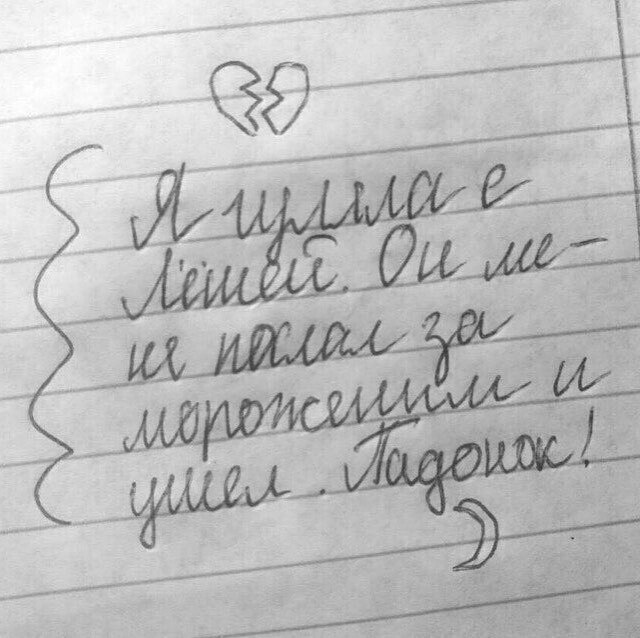 Я гуляла с
Лёшей. Он ме-
ня послал за
мороженым и
ушел. Падонок!